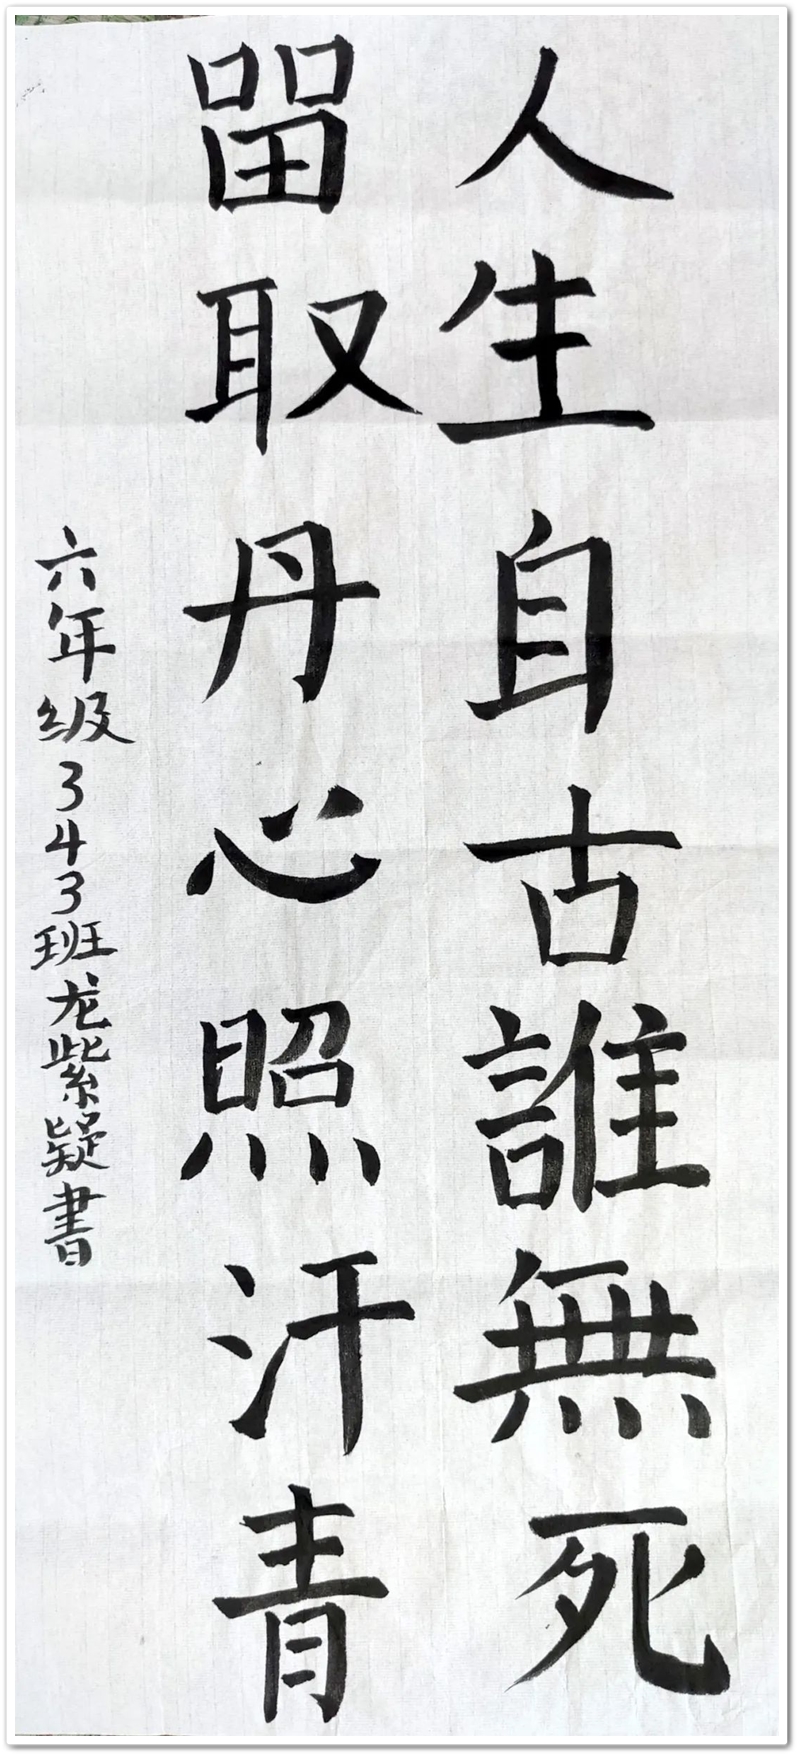 人生自古誰無死
畱取丹心照汗青
六年级343班龙紫疑書